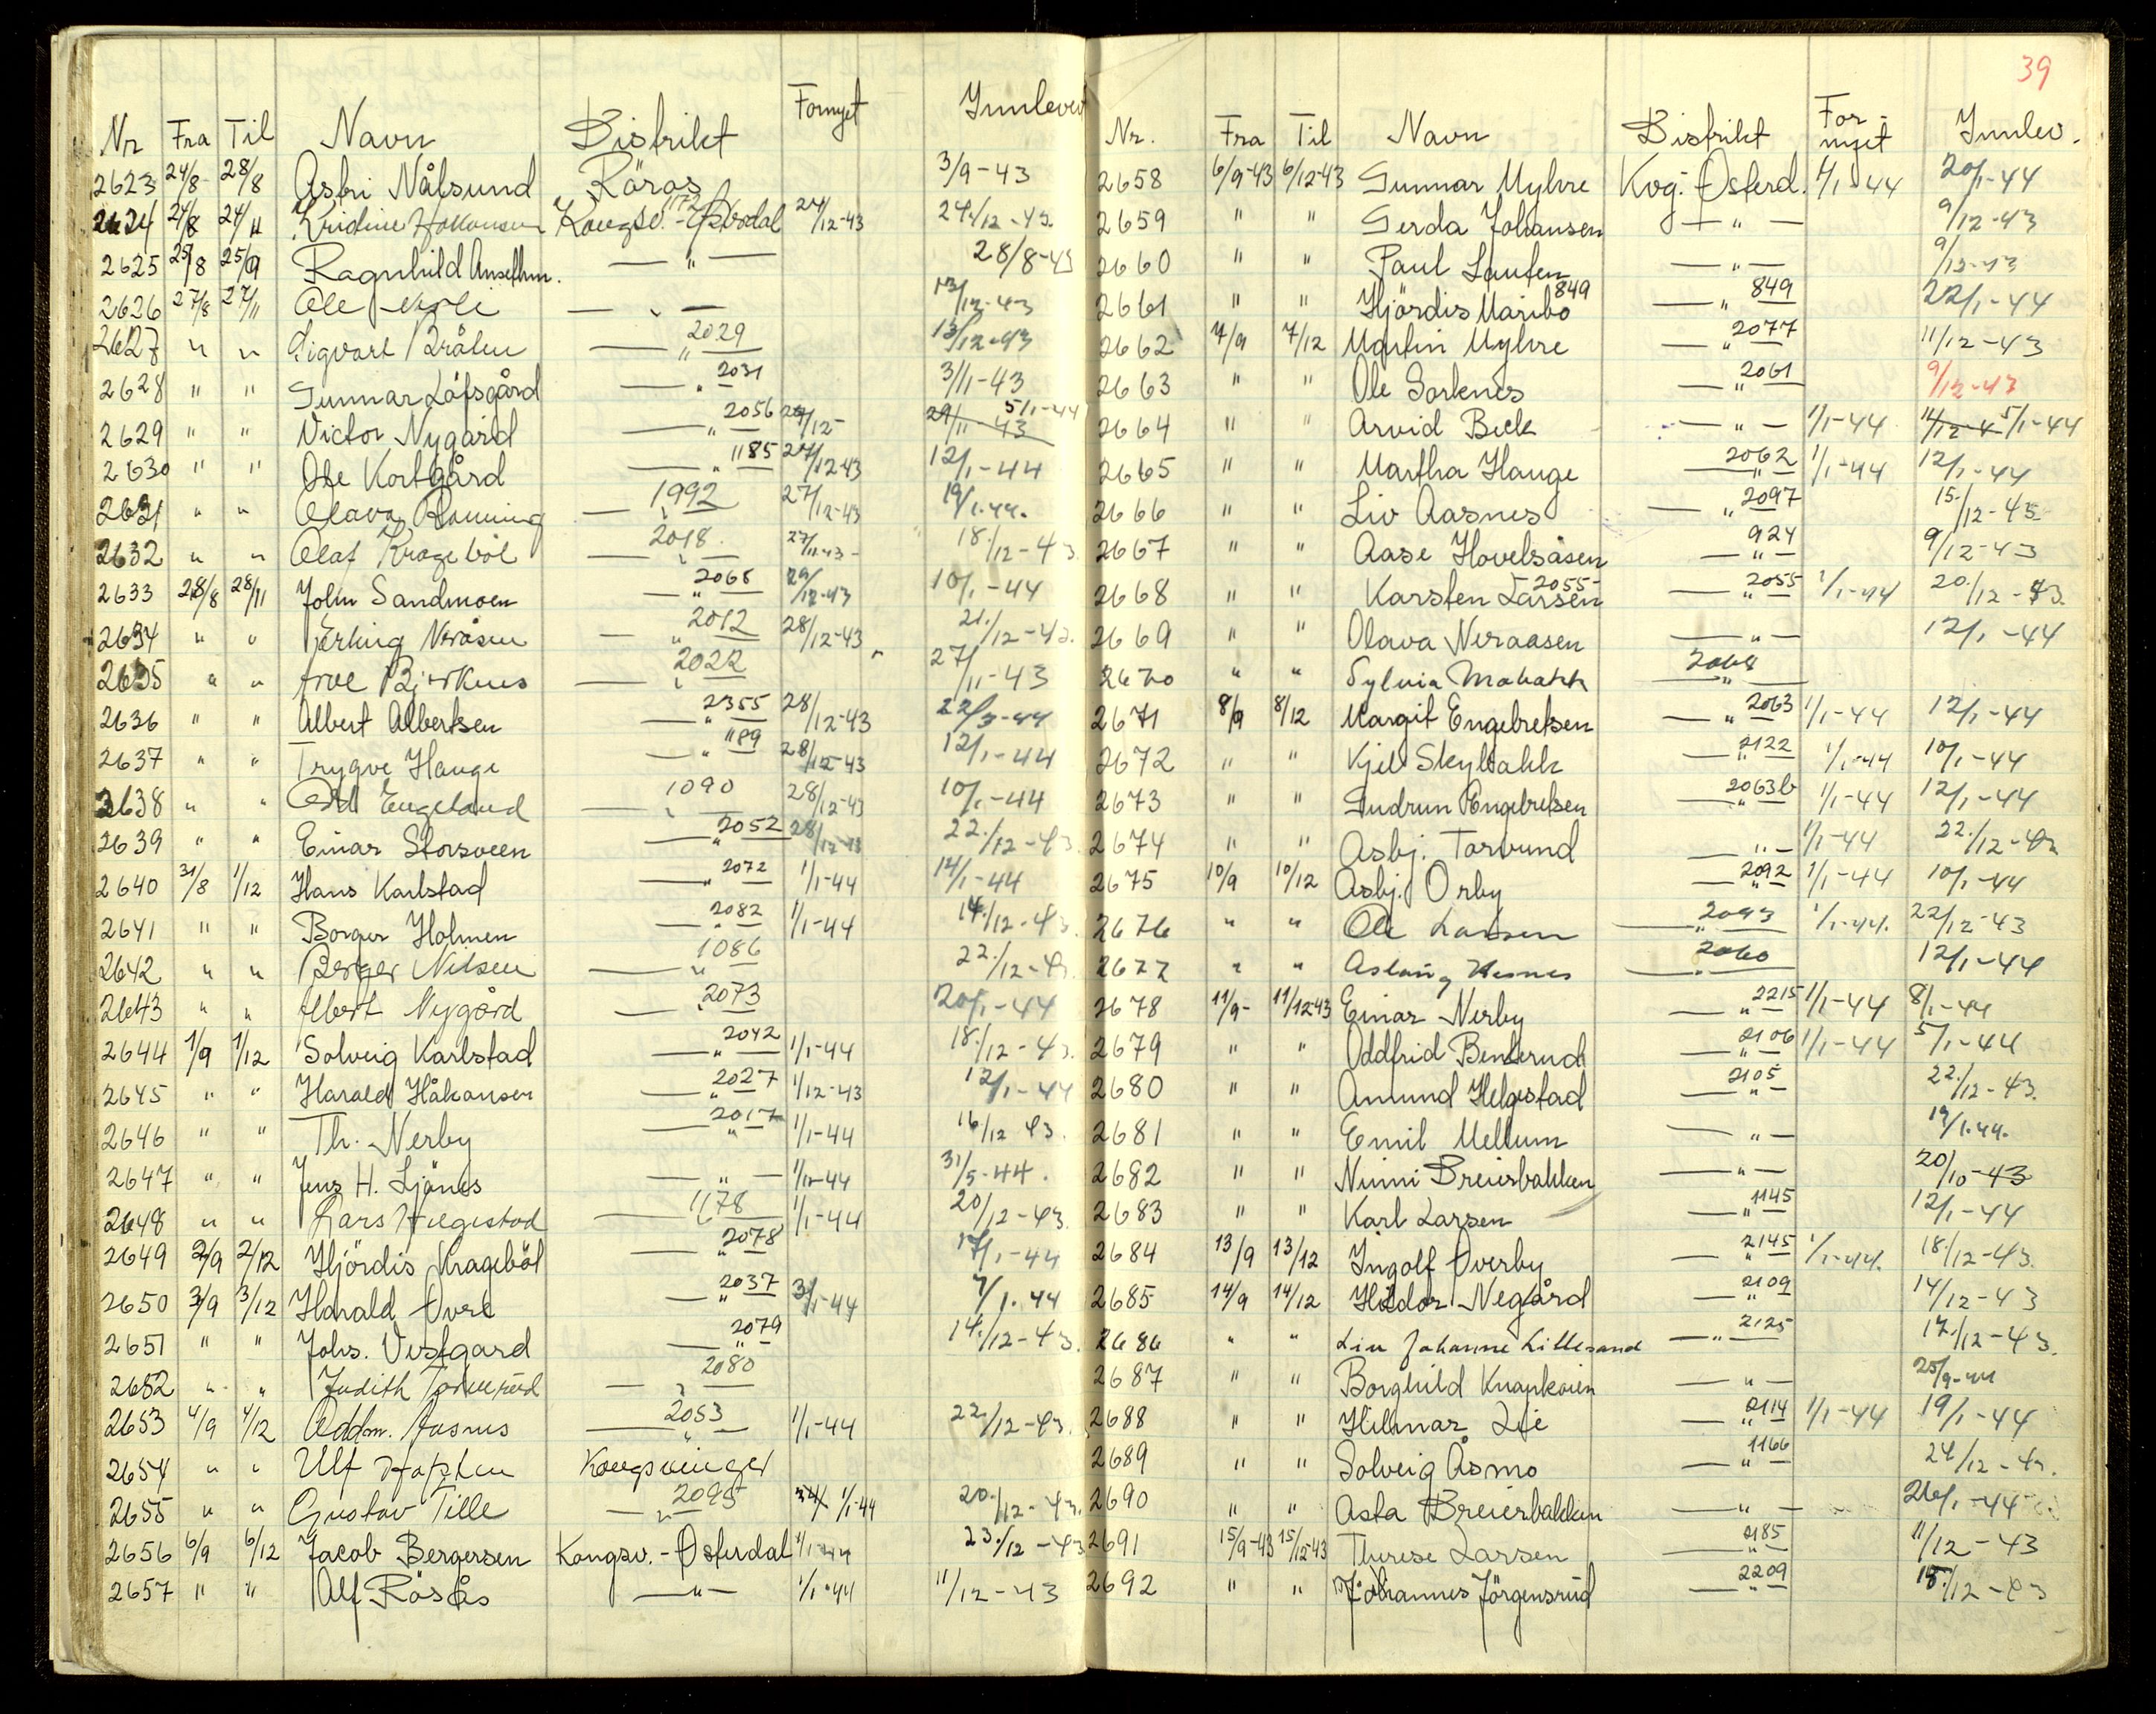 Nr Fra Til Navn Distrikt Fornyet Innlevert
2623 24/8- 28/8 Asbj Nålsund Röros 3/9-43
2624 24/8 24/11 Kristine Hokansen Kongsv.-Österdal 1172 24/12-43 24./12-43.
2625 25/8 25/9 Ragnhild Anselhm. —"— 28/8-43
2626 27/8 27/11 Ole —"— 13/12-43
2627 " " Sigvart Bråten —"— 2029 13/12-43
2628 " " Gunnar Löfsgård —"— 2031 3/11-43
2629 " " Victor Nygård —"— 2056 29/12- 29/11-43 5/1-44
2630 " " Ole Kortgård —"— 1185 27/12-43 12/1-44
2631 " " Olava Ramming —"— 1992 27/12-43 19/1.44.
2632 " " Olaf Krageböl —"— 2018. 27/11-43- 18./12-43.
2633 28/8 28/11 John Sandmoen —"— 2065 29/12-43 10/1-44
2634 " " Erling Neråsen —"— 2012 28/12-43 21./12-43.
2635 " " Arve Bjerknes —"— 2022 27/11-43
2636 " " Albert Albertsen —"— 2355 28/12-43 22/3-44
2637 " " Trygve Hauge —"— 1189 28/12-43 12/1-44
2638 " " Odd Engeland —"— 1090 28/12-43 10/1-44
2639 " " Einar Storsveen —"— 2052 28/12-43 22./12-43.
2640 31/8 1/12 Hans Karlstad —"— 2072 1/1-44 14/1-44
2641 " " Borger Holmen —"— 2082 1/1-44 14./12-43.
2642 " " Berger Nilsen —"— 1086 22./12-43.
2643 " " Albert Nygård —"— 2073 20/1-44
2644 1/9 1/12 Solveig Karlstad —"— 2042 1/1-44 18./12-43.
2645 " " Harald Håkansen —"— 2027 1/12-43 12/1-44
2646 " " Th. Nerby —"— 2017 1/1-44 16/12 43.
2647 " " Jens H. Ljönes —"— 1/1-44 31/5-44.
2648 " " Lars Helgestad —"— 1178 1/1-44 20/12-43.
2649 2/9 2/12 Hjördis Krageböl —"— 2078 17/1-44
2650 3/9 3/12 Harald Övre —"— 2037 3/1-44 7/1.44
2651 " " Johs. Vestgard —"— 2079 14./12-43.
2652 " " Judith Tomerud —"— 2080
2653 4/9 4/12 Oddm. Aasnes —"— 2053 1/1-44 22./12-43.
2654 " " Ulf Kongsvinger
2655 " " Gustav Tille —"— 2095 1/1-44 20./12-43.
2656 6/9 6/12 Jacob Bergersen Kongsv.-Österdal 1/1-44 23./12-43
2657 " " Alf Rösås —"— 1/1-44 11/12-43
39
Nr. Fra Til Navn Distrikt For-nyet Innlev.
2658 6/9-43 6/12-43 Gunnar Myhre Kvg.-Österd. 1/1-44 20/1-44
2659 " " Gerda Johansen —"— 9/12-43
2660 " " Paul Lauten —"— 9/12-43
2661 " " Hjördis Maribo 849 —"— 849 22/1-44
2662 7/9 7/12 Martin Myhre —"— 2077 11/12-43
2663 " " Ole Sorknes —"— 2061 9/12-43
2664 " " Arvid Beck —"— 1/1-44 14/12-4 5/1-44
2665 " " Martha Hauge —"— 2062 1/1-44 12/1-44
2666 " " Liv Aasnes —"— 2097 15./12-43
2667 " " Aase Hovelsåsen —"— 924 9/12-43
2668 " " Karsten Larsen 2055- —"— 2055 1/1-44 20./12-43.
2669 " " Olava Neraasen —"— 12/1-44
2670 " " Sylvia Mobakk —"— 2068
2671 8/9 8/12 Margit Engebretsen —"— 2063 1/1-44 12/1-44
2672 " " Kjell Skylbakk —"— 2122 1/1-44 10/1-44
2673 " " Gudrun Engebretsen —"— 2063b 1/1-44 12/1-44
2674 " " Asbj. Torvund —"— 1/1-44 22./12-43
2675 10/9 10/12 Asbj. Orby —"— 2092 1/1-44 10/1-44
2676 " " Ole Larsen —"— 2093 1/1-44. 22/12-43
2677 " " Aslaug Hesnes —"— 2060 12/1-44
2678 11/9- 11/12-43 Einar Nerby —"— 2215 1/1-44 8/1-44
2679 " " Oddfrid Benterud —"— 2106 1/1-44 5/1-44
2680 " " Amund Helgestad —"— 2105 22./12-43.
2681 " " Emil Mellum —"— 19/1.44.
2682 " " Ninni Breierbakken —"— 20/10-43
2683 " " Karl Larsen —"— 1145 12/1-44
2684 13/9 13/12 Ingolf Överby —"— 2145 1/1-44. 18./12-43.
2685 14/9 14/12 Haldor Negård —"— 2109 14/12-43
2686 " " Liv Johanne Lillesand —"— 2125 17./12-43.
2687 " " Borghild Knapkøien —"— 25/9-44
2688 " " Hilmar Lie —"— 2114 1/1-44 19/1-44
2689 " " Solveig Åsmo —"— 1166 24/12-43.
2690 " " Asta Breierbakken —"— 26/1-44
2691 15/9-43 15/12-43 Therese Larsen —"— 2185 11/12-43
2692 " " Johannes Jörgensrud —"— 2209 18./12-43